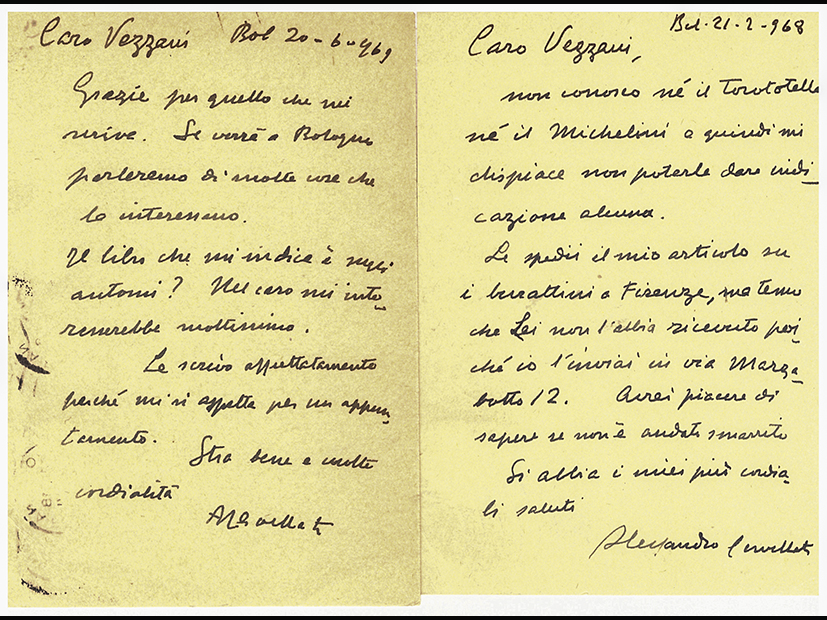 Caro Vezzani Bol 20-6-969
Grazie per quello che mi
scrive. Se verrà a Bologna
parleremo di molte cose che
la interessano.
Il libro che mi indica è sugli
automi? Nel caro mi inte-
resserebbe moltissimo.
Le scrivo affrettatamente
perché mi si aspetta per un appun-
tamento.
Stia bene e molte
cordialità
Bol. 21-2-968
Caro Vezzani,
non conosco né il Torototella
né il Michelini e quindi mi
dispiace non poterle dare indi-
cazione alcuna.
Le spedii il mio articolo su
i burattini a Firenze, ma temo
che Lei non l'abbia ricevuto poi-
ché io l'inviai in via Marza-
botto 12. Avrei piacere di
sapere se non è andato smarrito
Si abbia i miei più cordia-
li saluti
Alessandro Cervellati